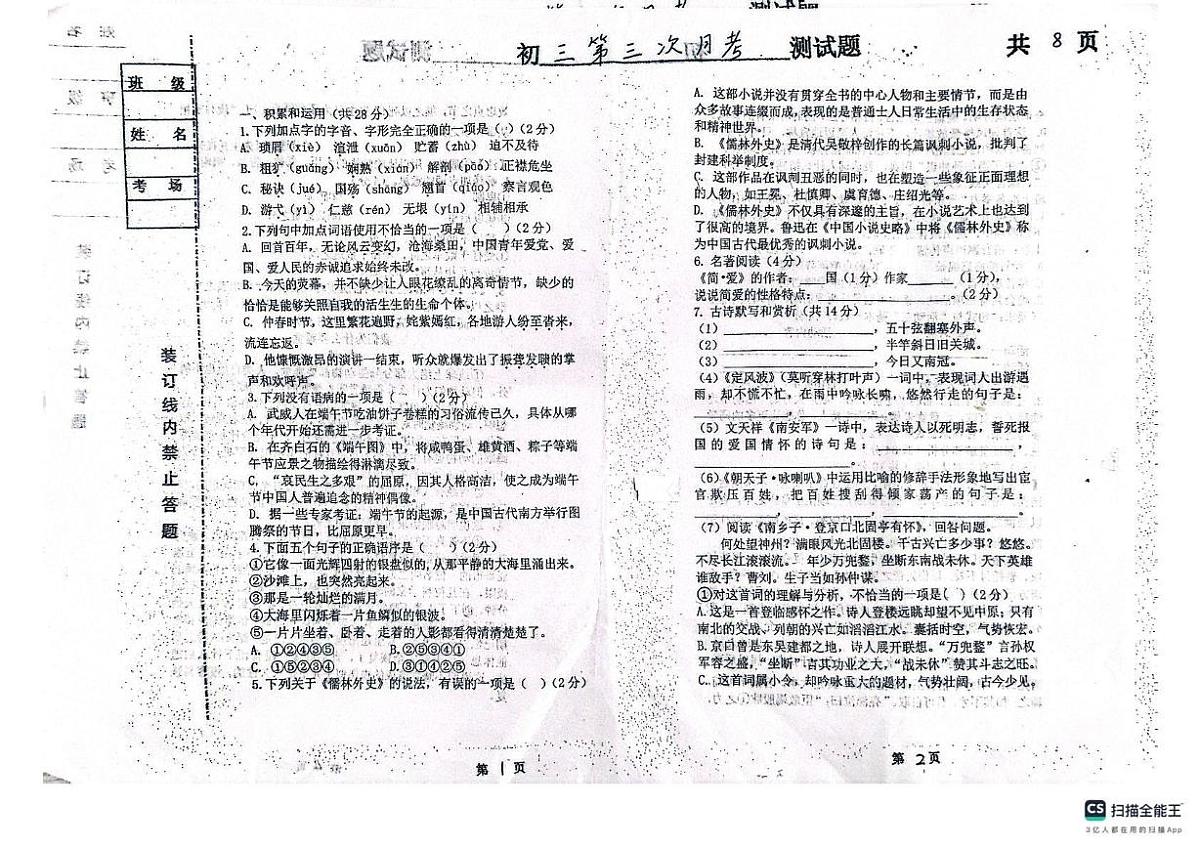 初三第三次月考测试题
共8页
班级
姓名
考场
装订线内禁止答题
一、积累和运用（共28分）
1.下列加点字的字音、字形完全正确的一项是（ ）（2分）
A. 琐屑（xiè） 渲泄（xuān） 贮蓄（zhù） 迫不及待
B. 粗犷（guǎng） 娴熟（xián） 解剖（pōo） 正襟危坐
C. 秘诀（jué） 国殇（shāng） 翘首（qiáo） 察言观色
D. 游弋（yì） 仁慈（rén） 无垠（yín） 相辅相承
2.下列句中加点词语使用不恰当的一项是（ ）（2分）
A. 回首百年，无论风云变幻，沧海桑田，中国青年爱党、爱
国、爱人民的赤诚追求始终未改。
B. 今天的荧幕，并不缺少让人眼花缭乱的离奇情节，缺少的
恰恰是能够关照自我的活生生的生命个体。
C. 仲春时节，这里繁花遍野，姹紫嫣红，各地游人纷至沓来，
流连忘返。
D. 他慷慨激昂的演讲一结束，听众就爆发出了振聋发聩的掌
声和欢呼声。
3.下列没有语病的一项是（ ）（2分）
A. 武威人在端午节吃油饼子卷糕的习俗流传已久，具体从哪
个年代开始还需进一步考证。
B. 在齐白石的《端午图》中，将咸鸭蛋、雄黄酒、粽子等端
午节应景之物描绘得淋漓尽致。
C. “哀民生之多艰”的屈原，因其人格高洁，使之成为端午
节中国人普遍追念的精神偶像。
D. 据一些专家考证：端午节的起源，是中国古代南方举行图
腾祭的节日，比屈原更早。
4.下面五个句子的正确语序是（ ）（2分）
①它像一面光辉四射的银盘似的,从那平静的大海里涌出来。
②沙滩上，也突然亮起来。
③那是一轮灿烂的满月。
④大海里闪烁着一片鱼鳞似的银波。
⑤一片片坐着、卧着、走着的人影都看得清清楚楚了。
A. ①②④③⑤ B.②⑤③④①
C. ①⑤②③④ D.③①④②⑤
5.下列关于《儒林外史》的说法，有误的一项是（ ）（2分）
第1页
A. 这部小说并没有贯穿全书的中心人物和主要情节，而是由
众多故事连缀而成,表现的是普通士人日常生活中的生存状态
和精神世界。
B. 《儒林外史》是清代吴敬梓创作的长篇讽刺小说，批判了
封建科举制度。
C. 这部作品在讽刺丑恶的同时，也在塑造一些象征正面理想
的人物，如王冕、杜慎卿、虞育德、庄绍光等。
D. 《儒林外史》不仅具有深邃的主旨，在小说艺术上也达到
了很高的境界。鲁迅在《中国小说史略》中将《儒林外史》称
为中国古代最优秀的讽刺小说。
6. 名著阅读（4分）
《简·爱》的作者：____国（1分）作家______（1分），
说说简爱的性格特点：______________。（2分）
7. 古诗默写和赏析（共14分）
（1）________________，五十弦翻塞外声。
（2）________________，半竿斜日旧关城。
（3）________________，今日又南冠。
（4）《定风波》（莫听穿林打叶声）一词中，表现词人出游遇
雨，却不慌不忙，在雨中吟咏长啸，悠然行走的句子是：
__________，__________。
（5）文天祥《南安军》一诗中，表达诗人以死明志，誓死报
国的爱国情怀的诗句是：______________，
________________。
（6）《朝天子·咏喇叭》中运用比喻的修辞手法形象地写出宦
官欺压百姓，把百姓搜刮得倾家荡产的句子是：
________，__________，______________。
（7）阅读《南乡子·登京口北固亭有怀》，回答问题。
何处望神州？满眼风光北固楼。千古兴亡多少事？悠悠。
不尽长江滚滚流。 年少万兜鍪，坐断东南战未休。天下英雄
谁敌手？曹刘。生子当如孙仲谋。
①对这首词的理解与分析，不恰当的一项是（ ）（2分）
A.这是一首登临感怀之作。诗人登楼远眺却望不见中原；只有
南北的交战、列朝的兴亡如滔滔江水。囊括时空，气势恢宏。
B.京口曾是东吴建都之地，诗人展开联想。“万兜鍪”言孙权
军容之盛，“坐断”言其功业之大，“战未休”赞其斗志之旺。
C. 这首词属小令，却吟咏重大的题材，气势壮阔，古今少见。
第2页
CS 扫描全能王
3亿人都在用的扫描App